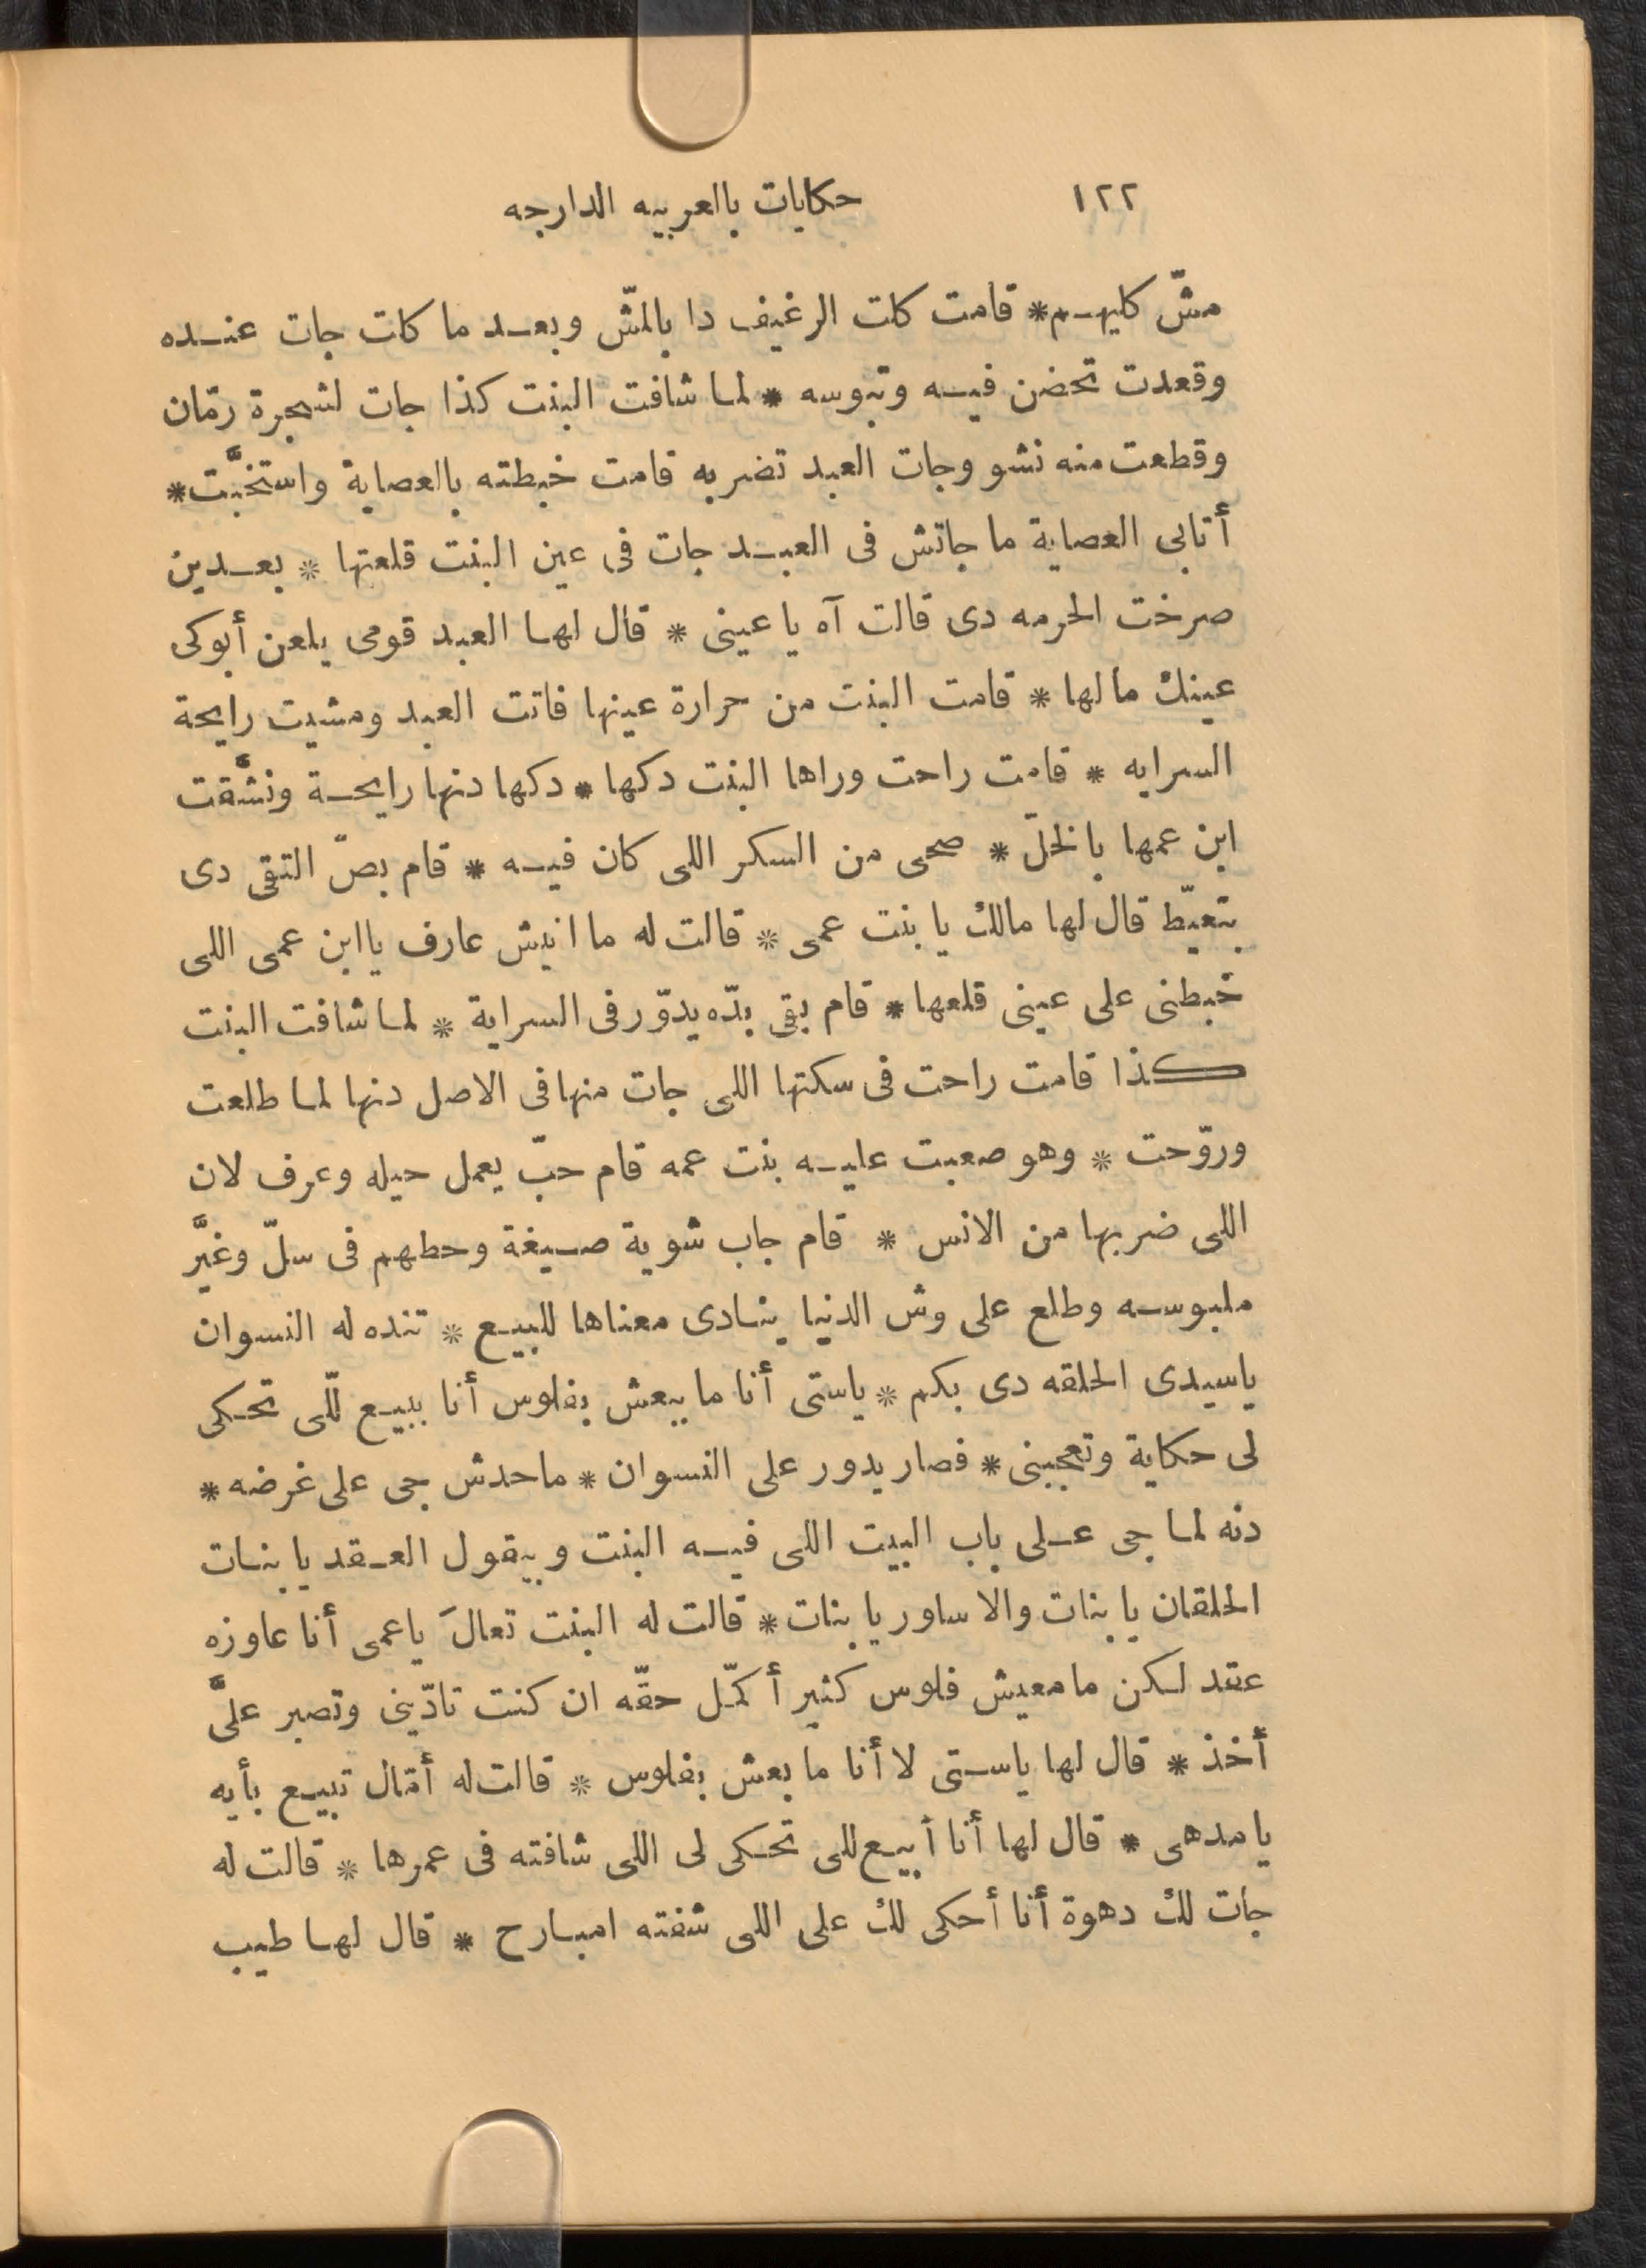 ١٢٢ حكايات بالعربيه الدارجه
مشّ كليهم * قامت كلت الرغيف دا بالمشّ وبعد ما كلت جات عنده
وقعدت تحضن فيه وتبوسه * لما شافت البنت كذا جات لشجرة رمّان
وقطعت منه نشو وجات العبد تضربه قامت خبطته بالعصاية واستخبَّت *
أتابى العصاية ما جاتش فى العبد جات فى عين البنت قلعتها * بعدين
صرخت الحرمه دى قالت آه يا عينى * قال لها العبد قومى يلعن أبوكى
عينك مالها * قامت البنت من حرارة عينها فاتت العبد ومشيت رايحة
السرايه * قامت راحت وراها البنت دكها * دكها دنها رايحة ونشَّقت
ابن عمها بالخلّ * صحى من السكر اللى كان فيه * قام بصّ التقى دى
بتعيّط قال لها مالك يا بنت عمى * قالت له ما انيش عارف يا ابن عمى اللى
خبطنى على عينى قلعها * قام بقى بدّه يدوّر فى السراية * لما شافت البنت
كذا قامت راحت فى سكتها اللى جات منها فى الاصل دنها لما طلعت
وروّحت * وهو صعبت عليه بنت عمه قام حبّ يعمل حيله وعرف لان
اللى ضربها من الانس * قام جاب شوية صيغة وحطهم فى سلّ وغيَّر
ملبوسه وطلع على وش الدنيا ينادى معناها للبيع * تنده له النسوان
ياسيدى الحلقه دى بكم * ياستى أنا ما بيعش بفلوس أنا ببيع للّى تحكى
لى حكاية وتعجبنى * فصار يدور على النسوان * ماحدش جى على غرضه *
دنه لما جى على باب البيت اللى فيه البنت وبيقول العقد يا بنات
الحلقان يا بنات والاساور يا بنات * قالت له البنت تعالَ ياعمى أنا عاوزه
عقد لكن مامعيش فلوس كثير أكمّل حقّه ان كنت تادّينى وتصبر علىَّ
أخذ * قال لها ياستى لا أنا ما بعش بفلوس * قالت له أمّال تبيع بأيه
يا مدهى * قال لها أنا أبيع للى تحكى لى اللى شافته فى عمرها * قالت له
جات لك دهوة أنا أحكى لك على اللى شفته امبارح * قال لها طيب